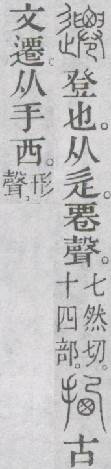 䙴登也。从辵䙴聲。七然切。十四部。拪古
文遷。从手西。形聲。